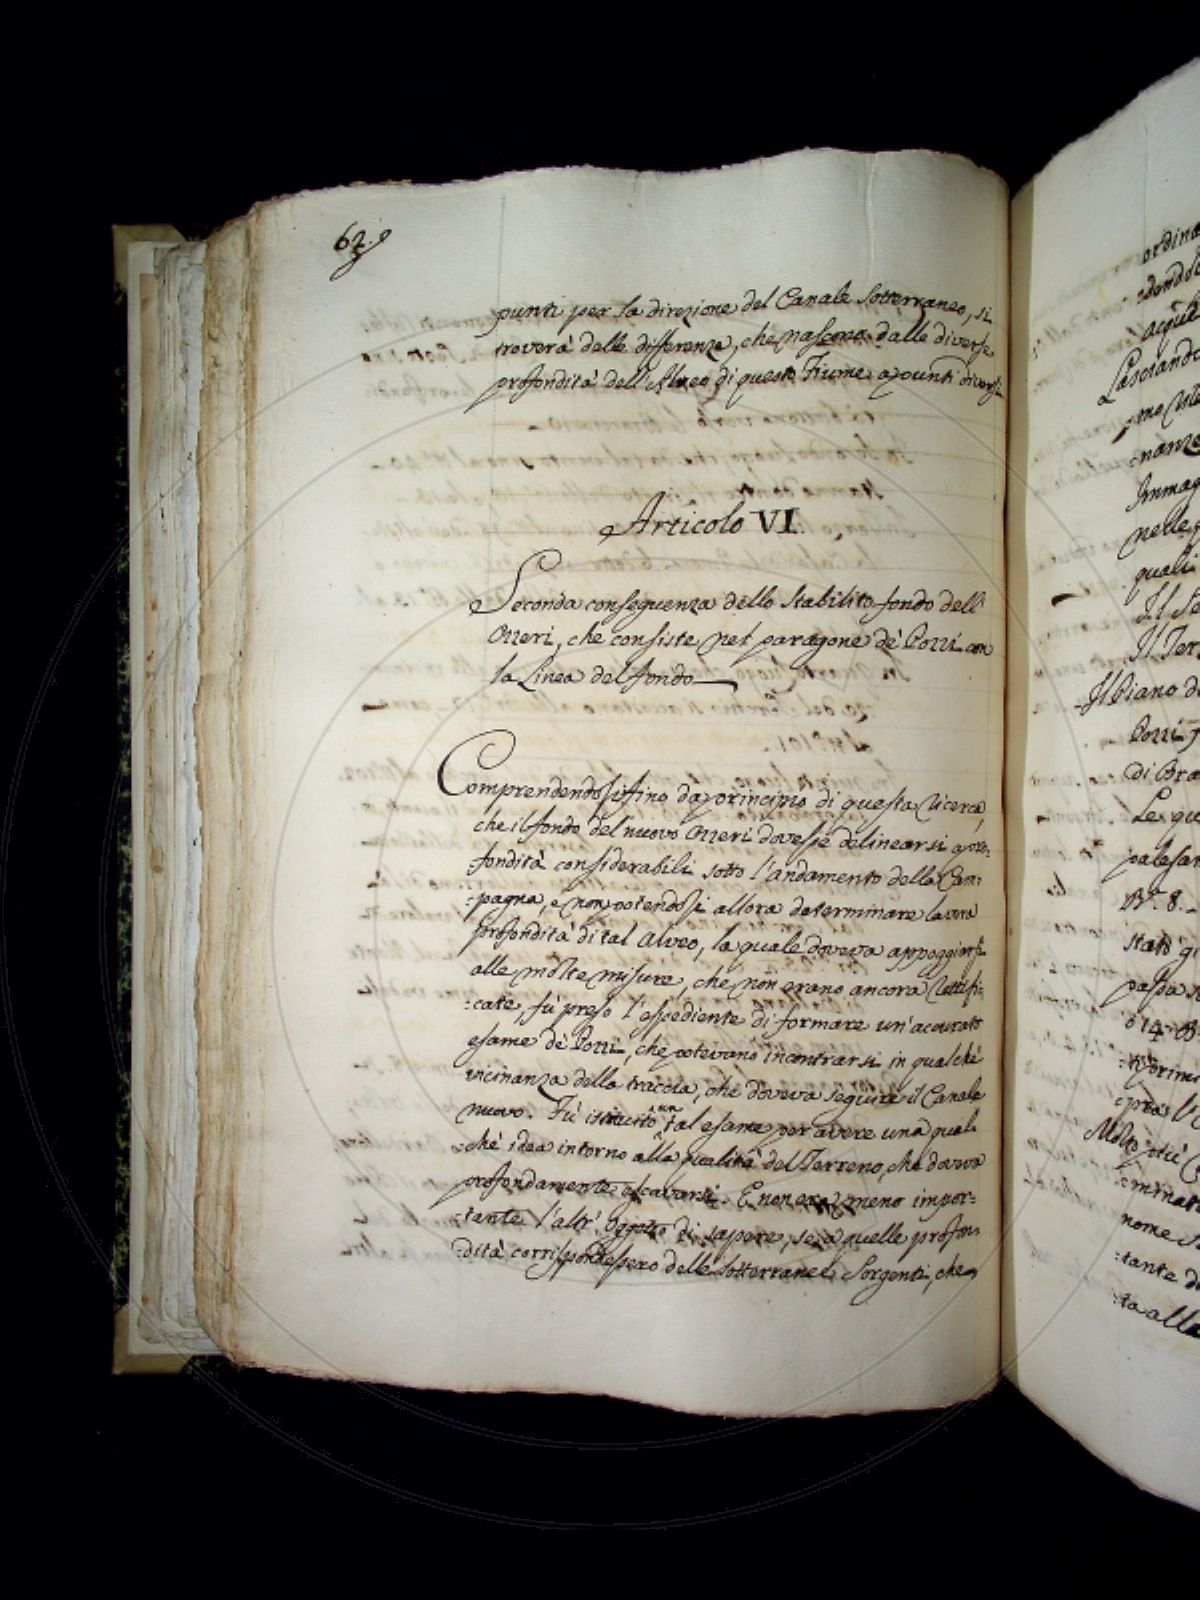 62.
punti per la direzione del Canale sotterraneo, si
troverà delle differenze, che nascono dalle diverse
profondità dell'Alveo di questo Fiume a punti diversi
Articolo VI.
Seconda conseguenza dello stabilito fondo dell'
Ozzeri, che consiste nel paragone de' Pozzi con
la Linea del fondo
Comprendendosi fino da principio di questa ricerca,
che il fondo del nuovo Ozzeri dovesse delinearsi a pro:
:fondità considerabili sotto l'andamento della Cam:
:pagna, e non potendosi allora determinare la vera
profondità di tal Alveo, la quale doveva appoggiarsi
alle molte misure, che non erano ancora rattifi:
:cate, fù preso l'espediente di formare un'accurato
esame de' Pozzi, che potevano incontrarsi in qualche
vicinanza della traccia, che doveva seguire il Canale
nuovo. Fù istituito un tal esame per avere una qual:
:chè idea intorno alla qualità del Terreno, che doveva
profondamente escavarsi. E non era meno impor:
:tante l'altr'Oggetto di sapere, se a quelle profon:
:dità corrispondessero delle sotterranee Sorgenti, che
ordina
:dendole
acque
Lasciando
nanze
Immag
nelle
quali
Il Se
Il Ter
Il Piano de
Pozzi
di Bra
Le qu
palesar
Bª. 8.
stato gi
passa
:ta alla
Molto più
:minat
nome
:tante di